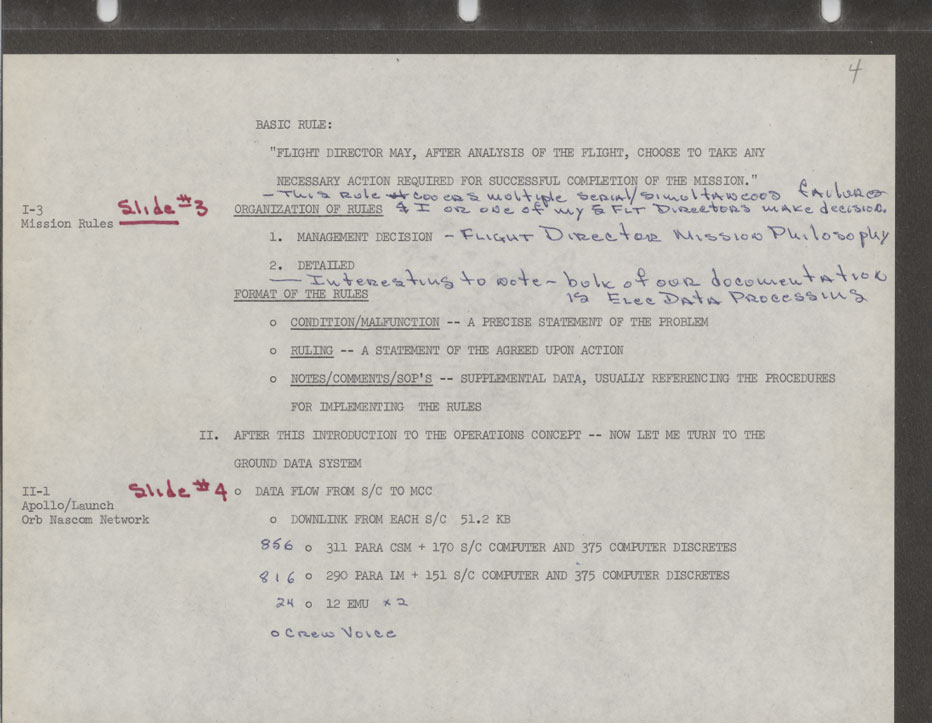 4
BASIC RULE:
"FLIGHT DIRECTOR MAY, AFTER ANALYSIS OF THE FLIGHT, CHOOSE TO TAKE ANY
NECESSARY ACTION REQUIRED FOR SUCCESSFUL COMPLETION OF THE MISSION."
- This Rule covers multiple serial/simultaneous failures
I-3
Mission Rules Slide #3
ORGANIZATION OF RULES & I or one of my 5 FLT Directors make decision.
1. MANAGEMENT DECISION - Flight Director Mission Philosophy
2. DETAILED
— Interesting to note - bulk of our documentation
is Elec Data Processing
FORMAT OF THE RULES
o CONDITION/MALFUNCTION -- A PRECISE STATEMENT OF THE PROBLEM
o RULING -- A STATEMENT OF THE AGREED UPON ACTION
o NOTES/COMMENTS/SOP'S -- SUPPLEMENTAL DATA, USUALLY REFERENCING THE PROCEDURES
FOR IMPLEMENTING THE RULES
II. AFTER THIS INTRODUCTION TO THE OPERATIONS CONCEPT -- NOW LET ME TURN TO THE
GROUND DATA SYSTEM
II-1
Apollo/Launch
Orb Nascom Network
Slide #4 o DATA FLOW FROM S/C TO MCC
o DOWNLINK FROM EACH S/C 51.2 KB
856 o 311 PARA CSM + 170 S/C COMPUTER AND 375 COMPUTER DISCRETES
816 o 290 PARA LM + 151 S/C COMPUTER AND 375 COMPUTER DISCRETES
24 o 12 EMU x 2
o Crew Voice